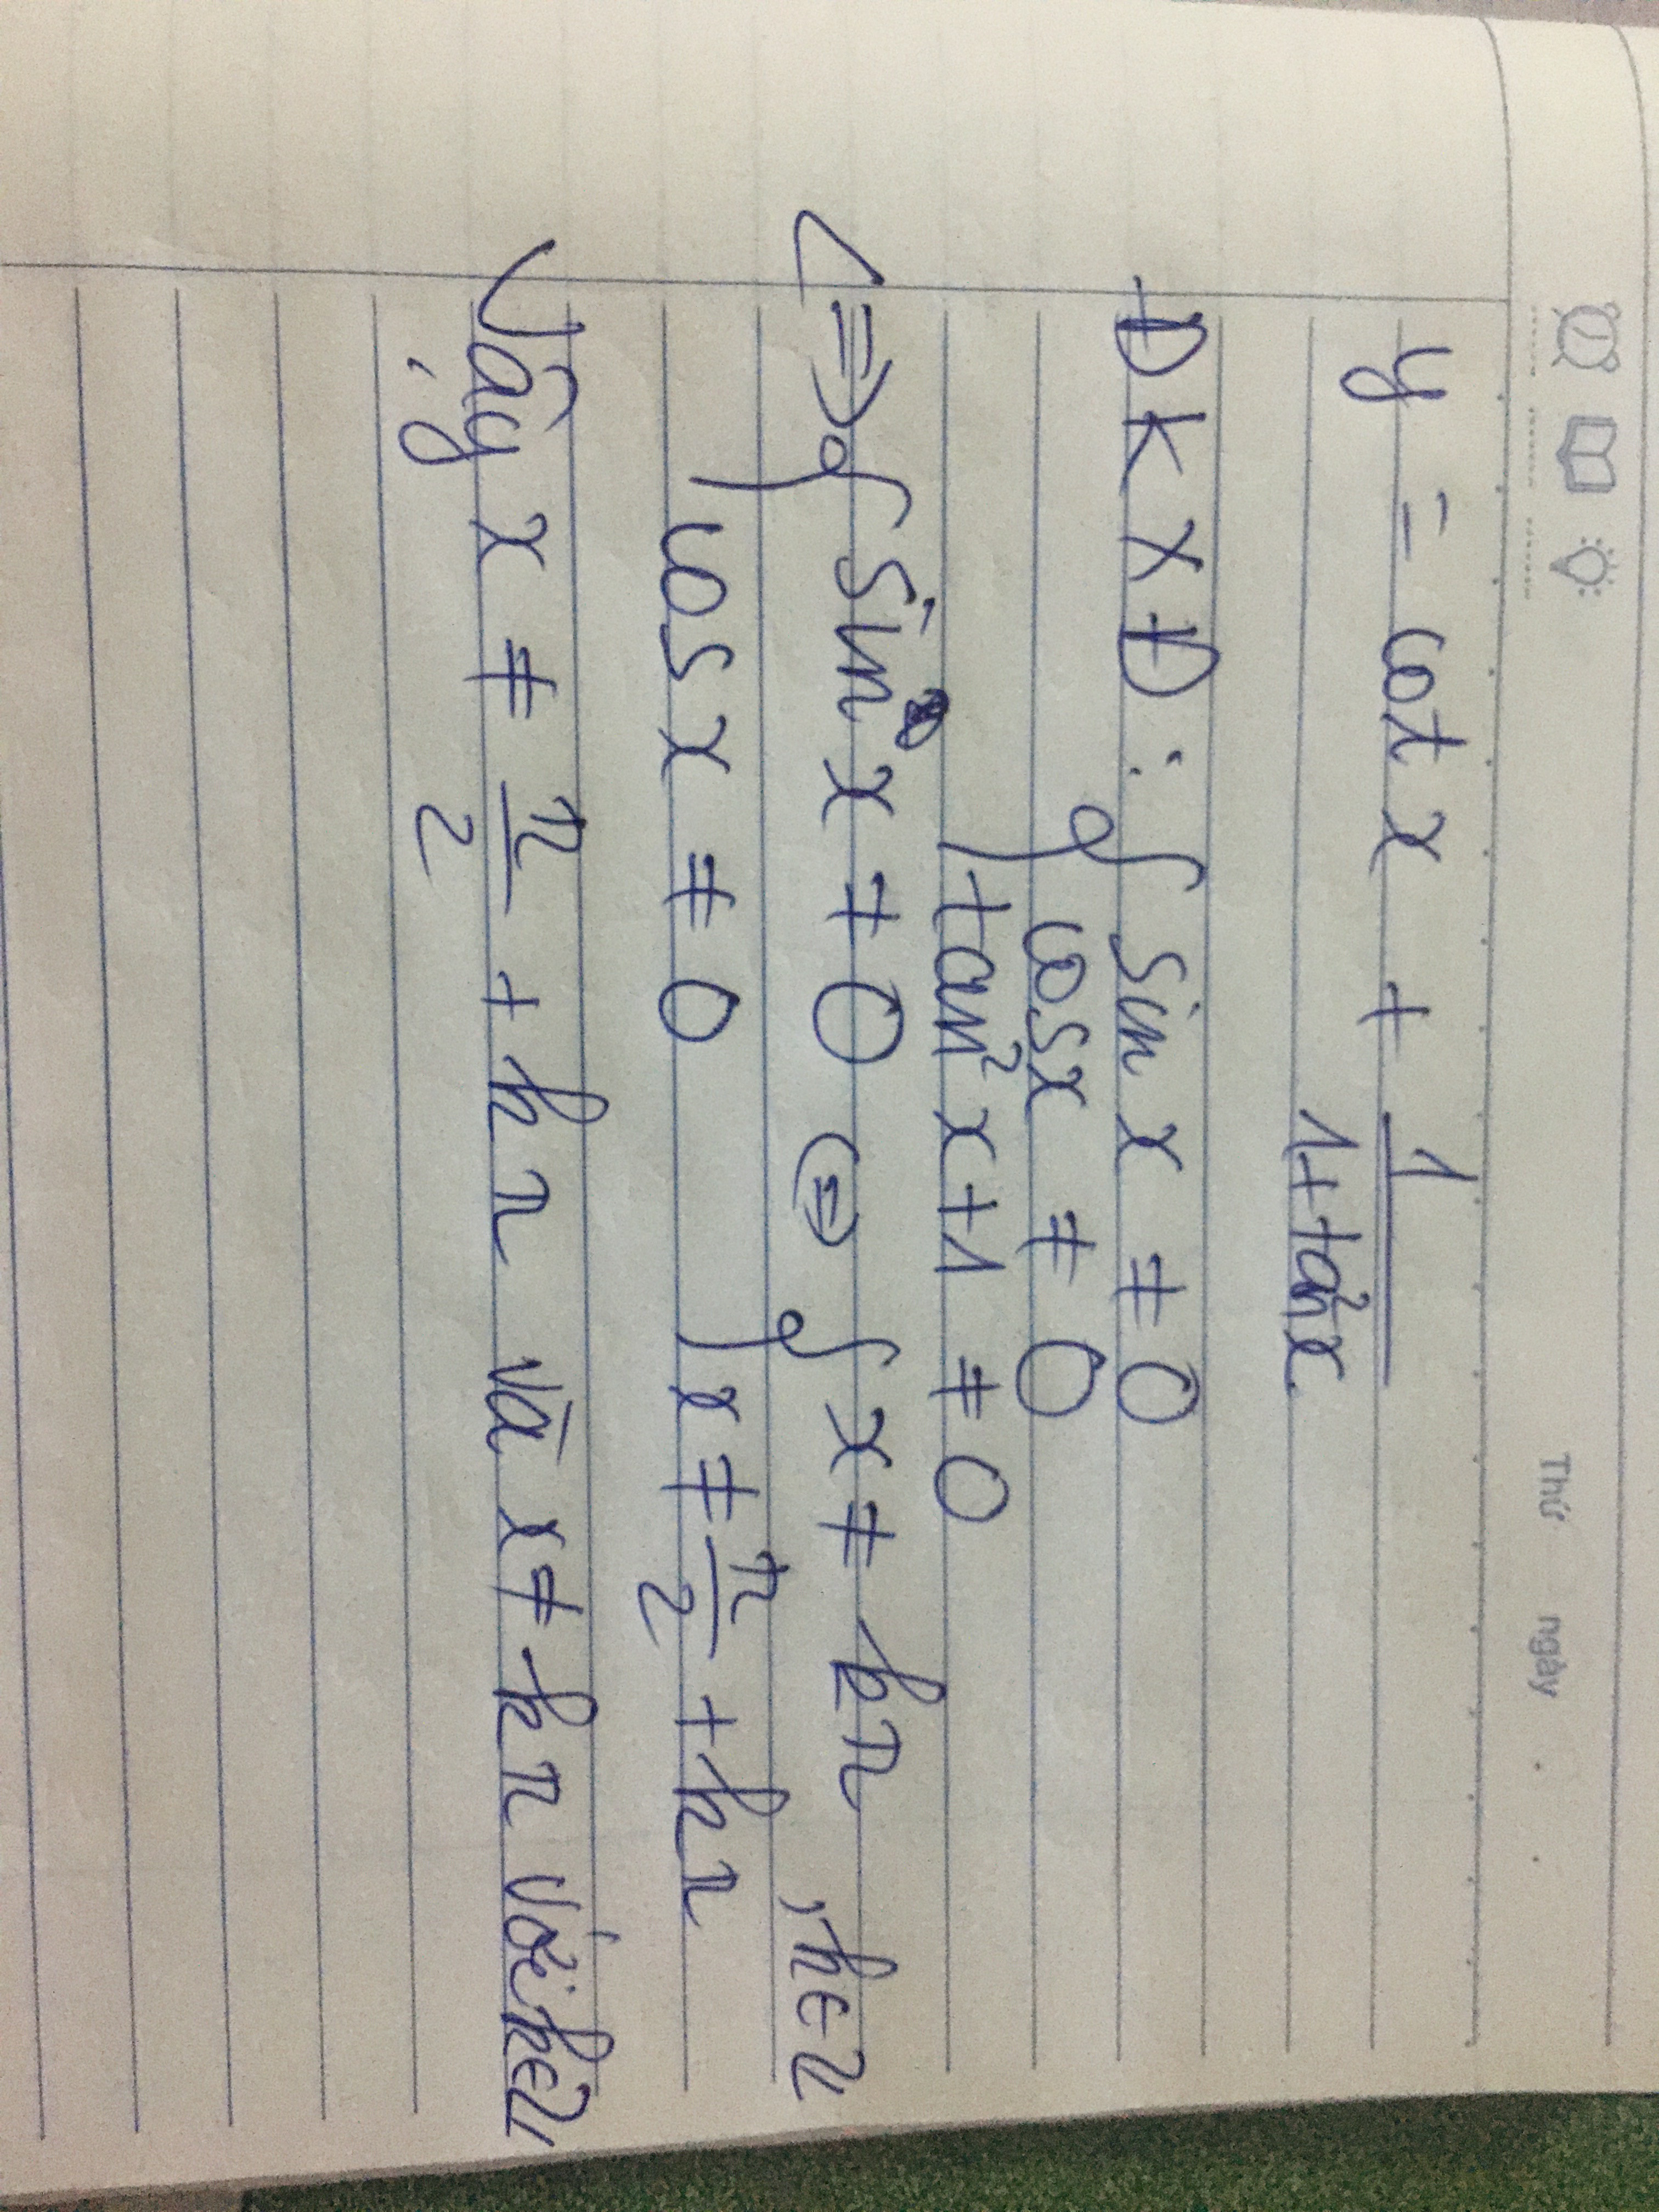 Thứ ngày
y = cot x + 1/(1+tan²x)
ĐKXĐ: { sin x ≠ 0
cosx ≠ 0
tan² x+1 ≠ 0
<=> { sin x ≠ 0 <=> { x ≠ kπ
cosx ≠ 0 x ≠ π/2 + kπ , k∈Z
Vậy x ≠ π/2 + kπ và x ≠ kπ với k∈Z